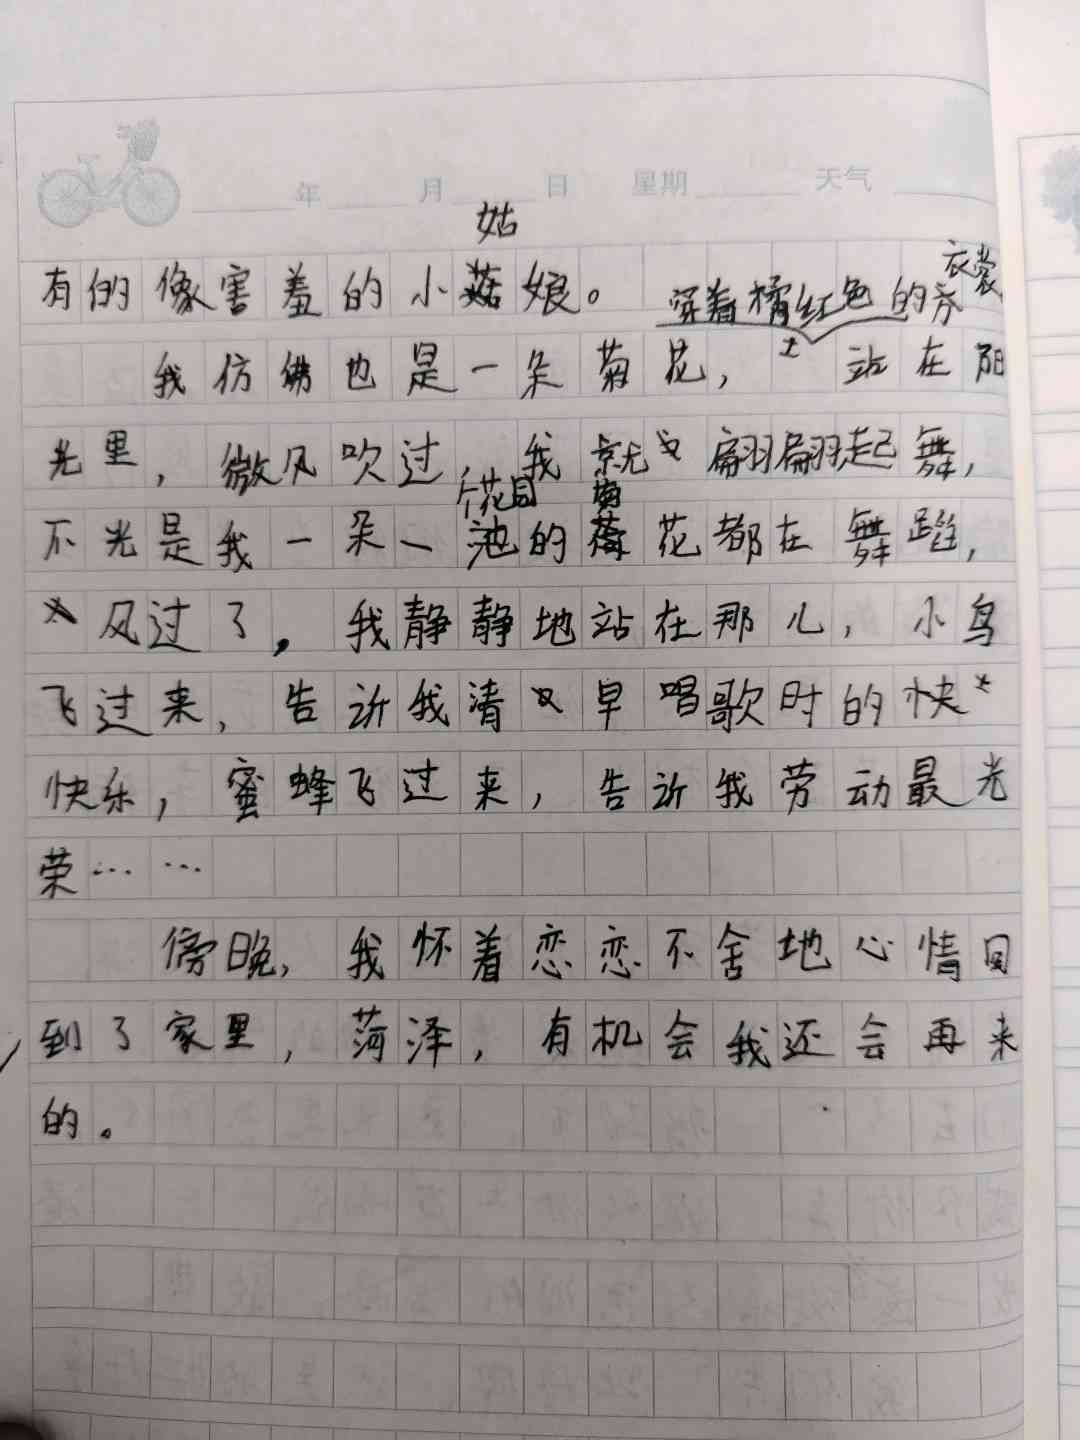 年 月 日 星期 天气
姑
有的像害羞的小菇娘。
衣裳
穿着橘红色的
我仿佛也是一朵菊花，站在阳
光里，微风吹过，我就翩翩起舞，
个花园
不光是我一朵一池的花都在舞蹈，
风过了，我静静地站在那儿，小鸟
飞过来，告诉我清早唱歌时的快
快乐，蜜蜂飞过来，告诉我劳动最光
荣……
傍晚，我怀着恋恋不舍地心情回
到了家里，菏泽，有机会我还会再来
的。